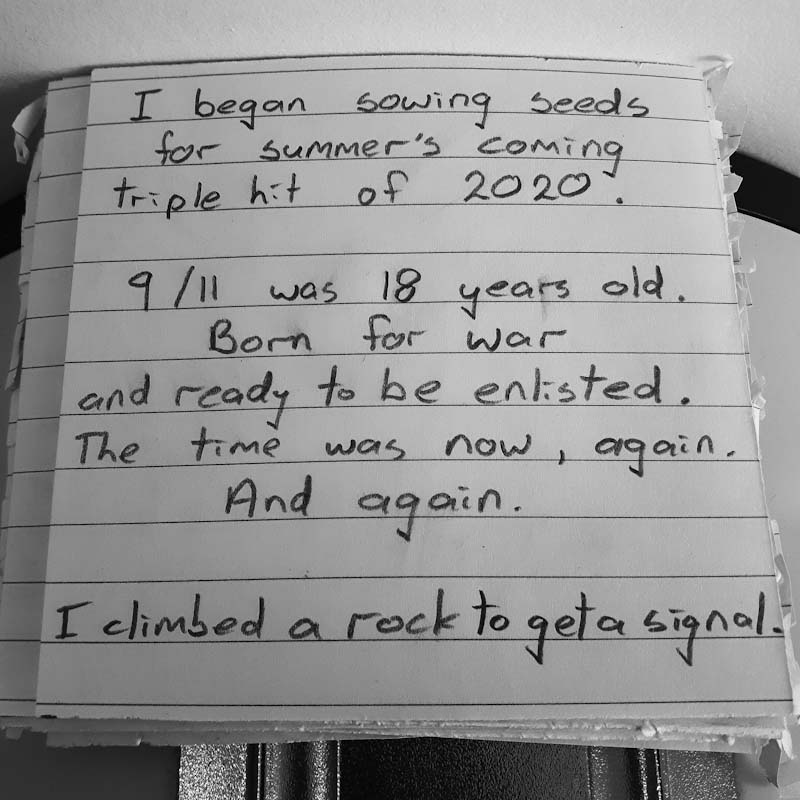 I began sowing seeds
for summer's coming
triple hit of 2020.
9/11 was 18 years old.
Born for war
and ready to be enlisted.
The time was now, again.
And again.
I climbed a rock to get a signal.